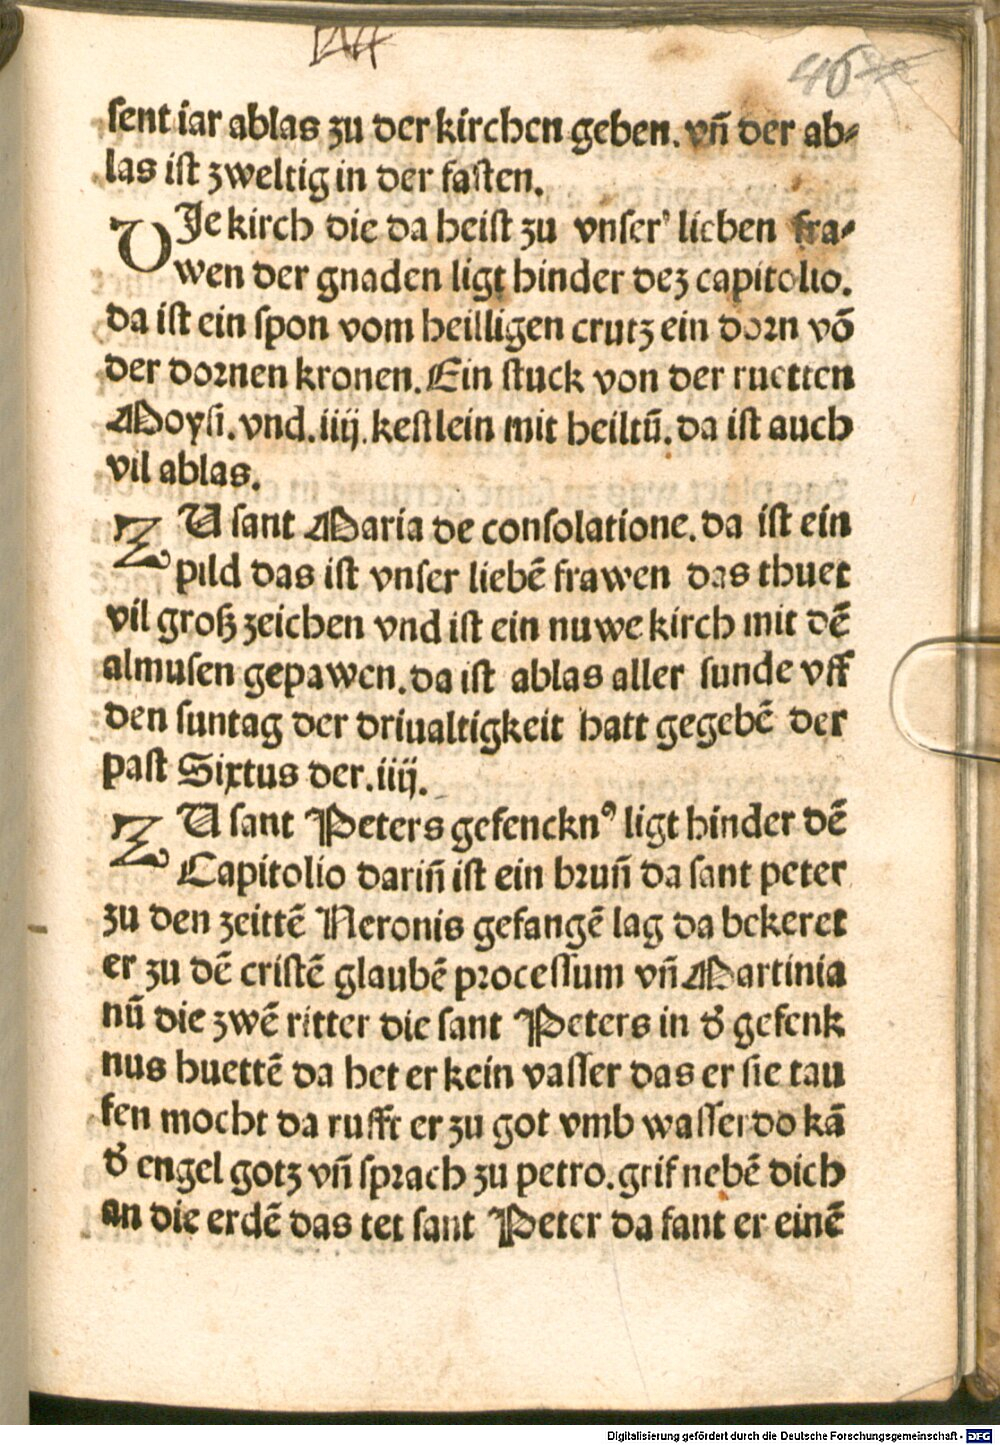 46
sent iar ablas zu der kirchen geben. vñ der ab⸗
las ist zweltig in der fasten.
DJe kirch die da heist zu vnser' lieben fra⸗
wen der gnaden ligt hinder dez capitolio.
da ist ein spon vom heilligen crutz ein dorn võ
der dornen kronen. Ein stuck von der ruetten
Moysi. vnd. iiij. kestlein mit heiltũ. da ist auch
vil ablas.
ZU sant Maria de consolatione. da ist ein
pild das ist vnser liebẽ frawen das thuet
vil groß zeichen vnd ist ein nuwe kirch mit dẽ
almusen gepawen. da ist ablas aller sunde vff
den suntag der driualtigkeit hatt gegebẽ der
past Sixtus der. iiij.
ZU sant Peters gefenckn⁹ ligt hinder dẽ
Capitolio dariñ ist ein bruñ da sant peter
zu den zeittẽ Neronis gefangẽ lag da bekeret
er zu dẽ cristẽ glaubẽ processum vñ Martinia
nũ die zwẽ ritter die sant Peters in d̕ gefenk
nus huettẽ da het er kein vasser das er sie tau
fen mocht da rufft er zu got vmb wasser do kã
d̕ engel gotz vñ sprach zu petro. grif nebẽ dich
an die erdẽ das tet sant Peter da fant er einẽ
Digitalisierung gefördert durch die Deutsche Forschungsgemeinschaft - DFG